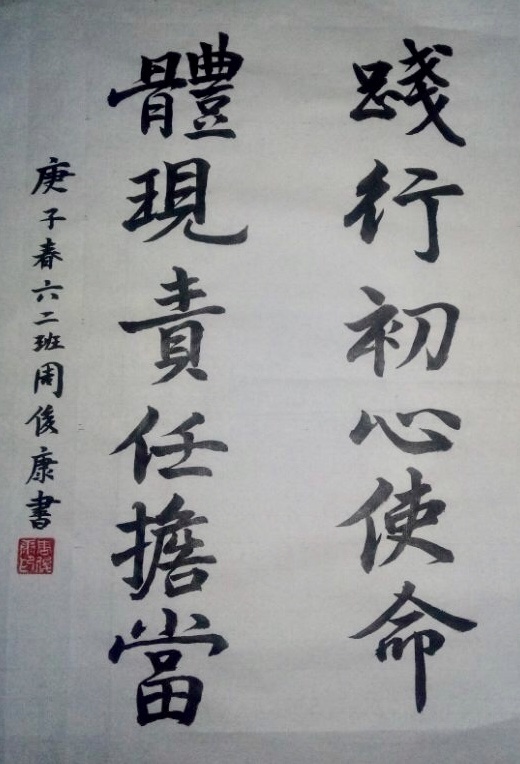 踐行初心使命
體現責任擔當
庚子春六二班周俊康書